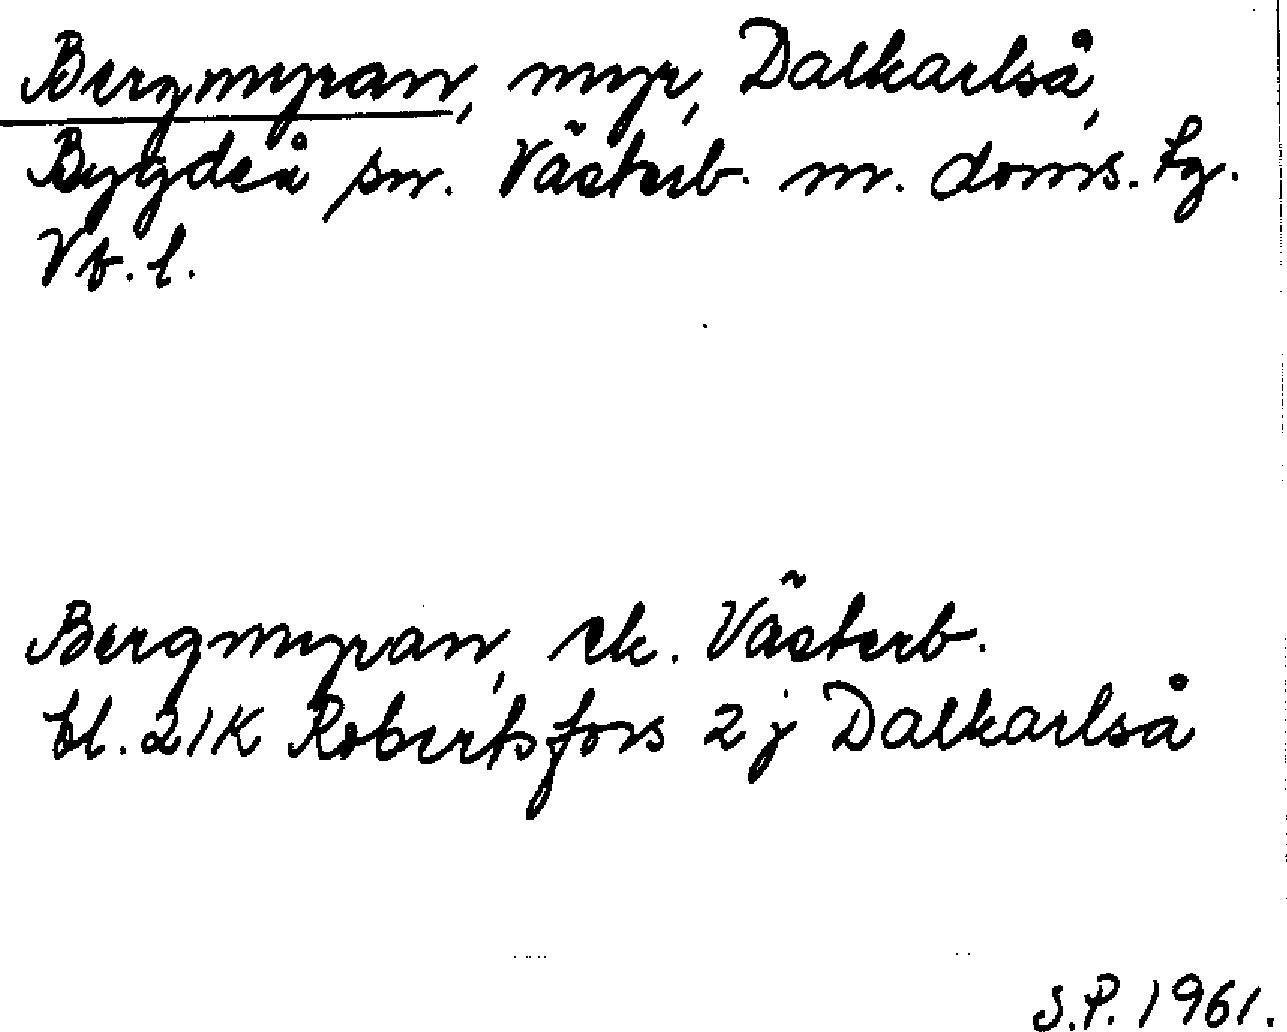 Bergmyran, myr, Dalkarlså,
Bygdeå sn. Västerb. m. doms. tg.
Vb. l.
Bergmyran, ek. Västerb.
bl. 21K Robertsfors 2j Dalkarlså
S.P. 1961.